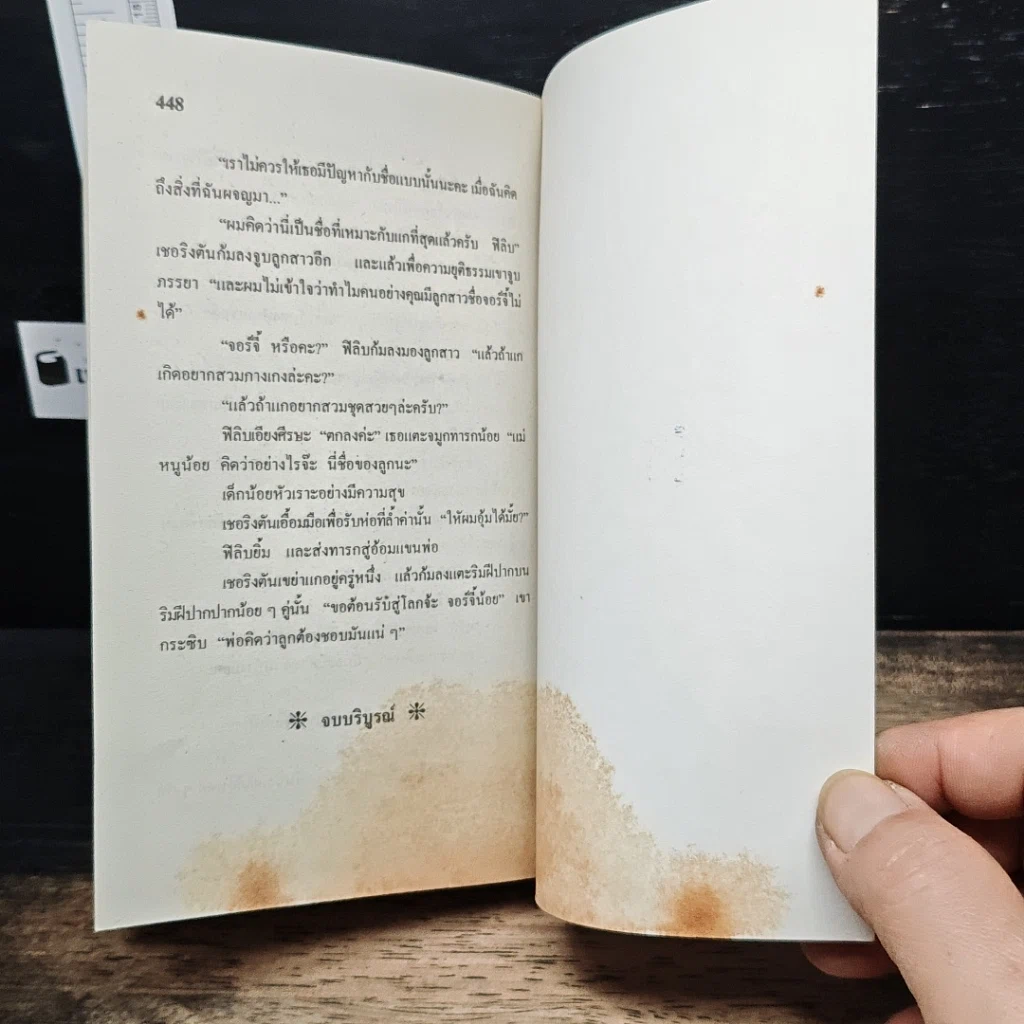 448
“เราไม่ควรให้เธอมีปัญหากับชื่อแบบนั้นนะคะ เมื่อฉันคิด
ถึงสิ่งที่ฉันผจญมา...”
“ผมคิดว่านี่เป็นชื่อที่เหมาะกับแกที่สุดแล้วครับ ฟีลิบ”
เชอริงตันก้มลงจูบลูกสาวอีก และแล้วเพื่อความยุติธรรมเขาจูบ
ภรรยา “และผมไม่เข้าใจว่าทำไมคนอย่างคุณมีลูกสาวชื่อจอร์จี้ไม่
ได้”
“จอร์จี้ หรือคะ?” ฟีลิบก้มลงมองลูกสาว “แล้วถ้าแก
เกิดอยากสวมกางเกงล่ะคะ?”
“แล้วถ้าแกอยากสวมชุดสวยๆล่ะครับ?”
ฟีลิบเอียงศีรษะ “ตกลงค่ะ” เธอแตะจมูกทารกน้อย “แม่
หนูน้อย คิดว่าอย่างไรจ๊ะ นี่ชื่อของลูกนะ”
เด็กน้อยหัวเราะอย่างมีความสุข
เชอริงตันเอื้อมมือเพื่อรับห่อที่ล้ำค่านั้น “ให้ผมอุ้มได้มั้ย?”
ฟีลิบยิ้ม และส่งทารกสู่อ้อมแขนพ่อ
เชอริงตันเขย่าแกอยู่ครู่หนึ่ง แล้วก้มลงแตะริมฝีปากบน
ริมฝีปากปากน้อย ๆ คู่นั้น “ขอต้อนรับสู่โลกจ้ะ จอร์จี้น้อย” เขา
กระซิบ “พ่อคิดว่าลูกต้องชอบมันแน่ ๆ”
จบบริบูรณ์